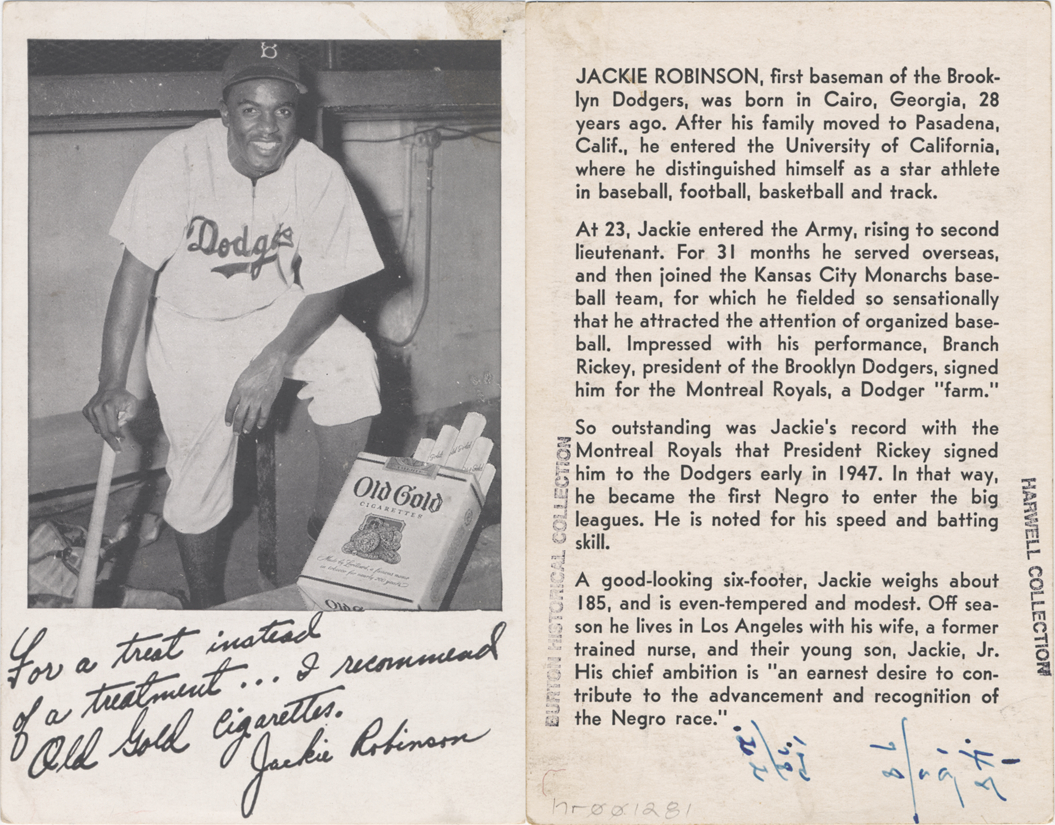 B
Dodgers
Old Gold
CIGARETTES
Old Gold
For a treat instead
of a treatment ... I recommend
Old Gold Cigarettes.
Jackie Robinson
JACKIE ROBINSON, first baseman of the Brook-
lyn Dodgers, was born in Cairo, Georgia, 28
years ago. After his family moved to Pasadena,
Calif., he entered the University of California,
where he distinguished himself as a star athlete
in baseball, football, basketball and track.
At 23, Jackie entered the Army, rising to second
lieutenant. For 31 months he served overseas,
and then joined the Kansas City Monarchs base-
ball team, for which he fielded so sensationally
that he attracted the attention of organized base-
ball. Impressed with his performance, Branch
Rickey, president of the Brooklyn Dodgers, signed
him for the Montreal Royals, a Dodger "farm."
So outstanding was Jackie's record with the
Montreal Royals that President Rickey signed
him to the Dodgers early in 1947. In that way,
he became the first Negro to enter the big
leagues. He is noted for his speed and batting
skill.
A good-looking six-footer, Jackie weighs about
185, and is even-tempered and modest. Off sea-
son he lives in Los Angeles with his wife, a former
trained nurse, and their young son, Jackie, Jr.
His chief ambition is "an earnest desire to con-
tribute to the advancement and recognition of
the Negro race."
BURTON HISTORICAL COLLECTION
HARWELL COLLECTION
hr001281